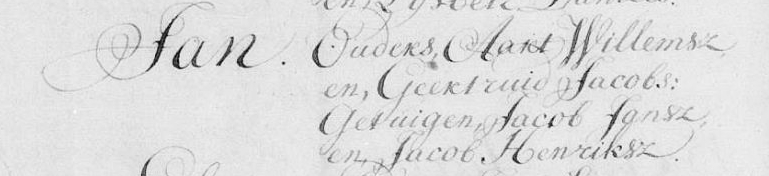 Jan. Ouders, Aart Willemsz,
en, Geertruid Jacobs:
Getuigen, Jacob Jansz,
en, Jacob Henriksz.